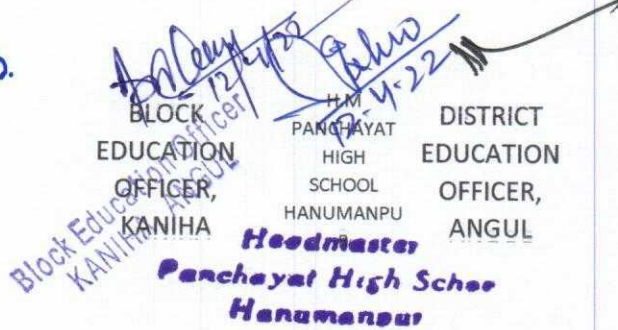 12/4/22
12-4-22
BLOCK
EDUCATION
OFFICER,
KANIHA
H.M
PANCHAYAT
HIGH
SCHOOL
HANUMANPU
R
DISTRICT
EDUCATION
OFFICER,
ANGUL
Block Education Officer
KANIHA, ANGUL
Headmaster
Panchayat High Schoo
Hanumanpur